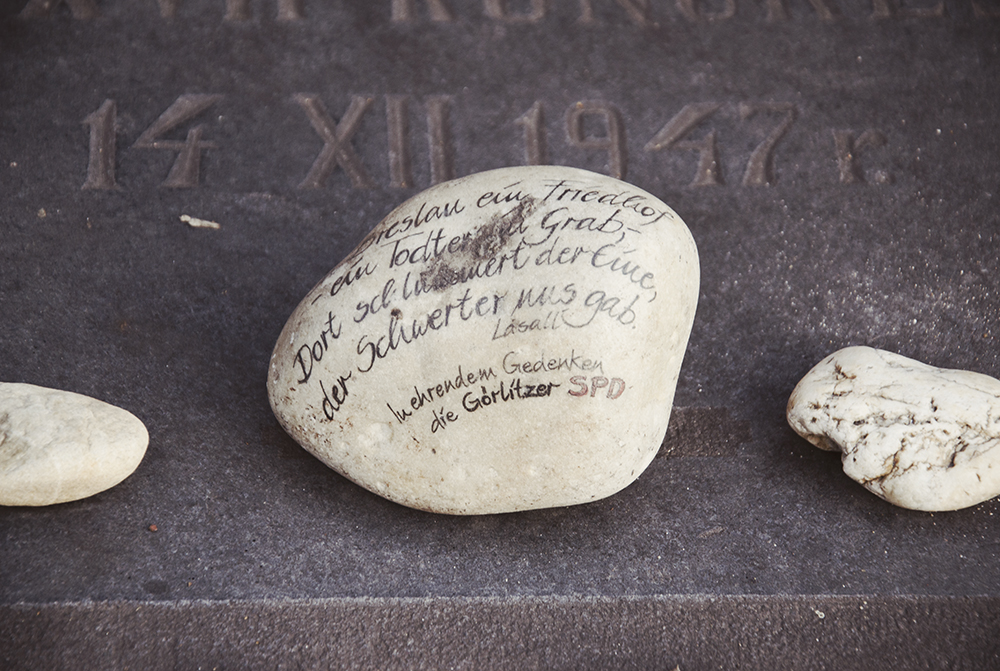 14 XII 1947 r.
Breslau ein Friedhof
- ein Todter im Grab,-
Dort schlummert der Eine,
der Schwerter uns gab.
Lasall
In ehrendem Gedenken
die Görlitzer SPD